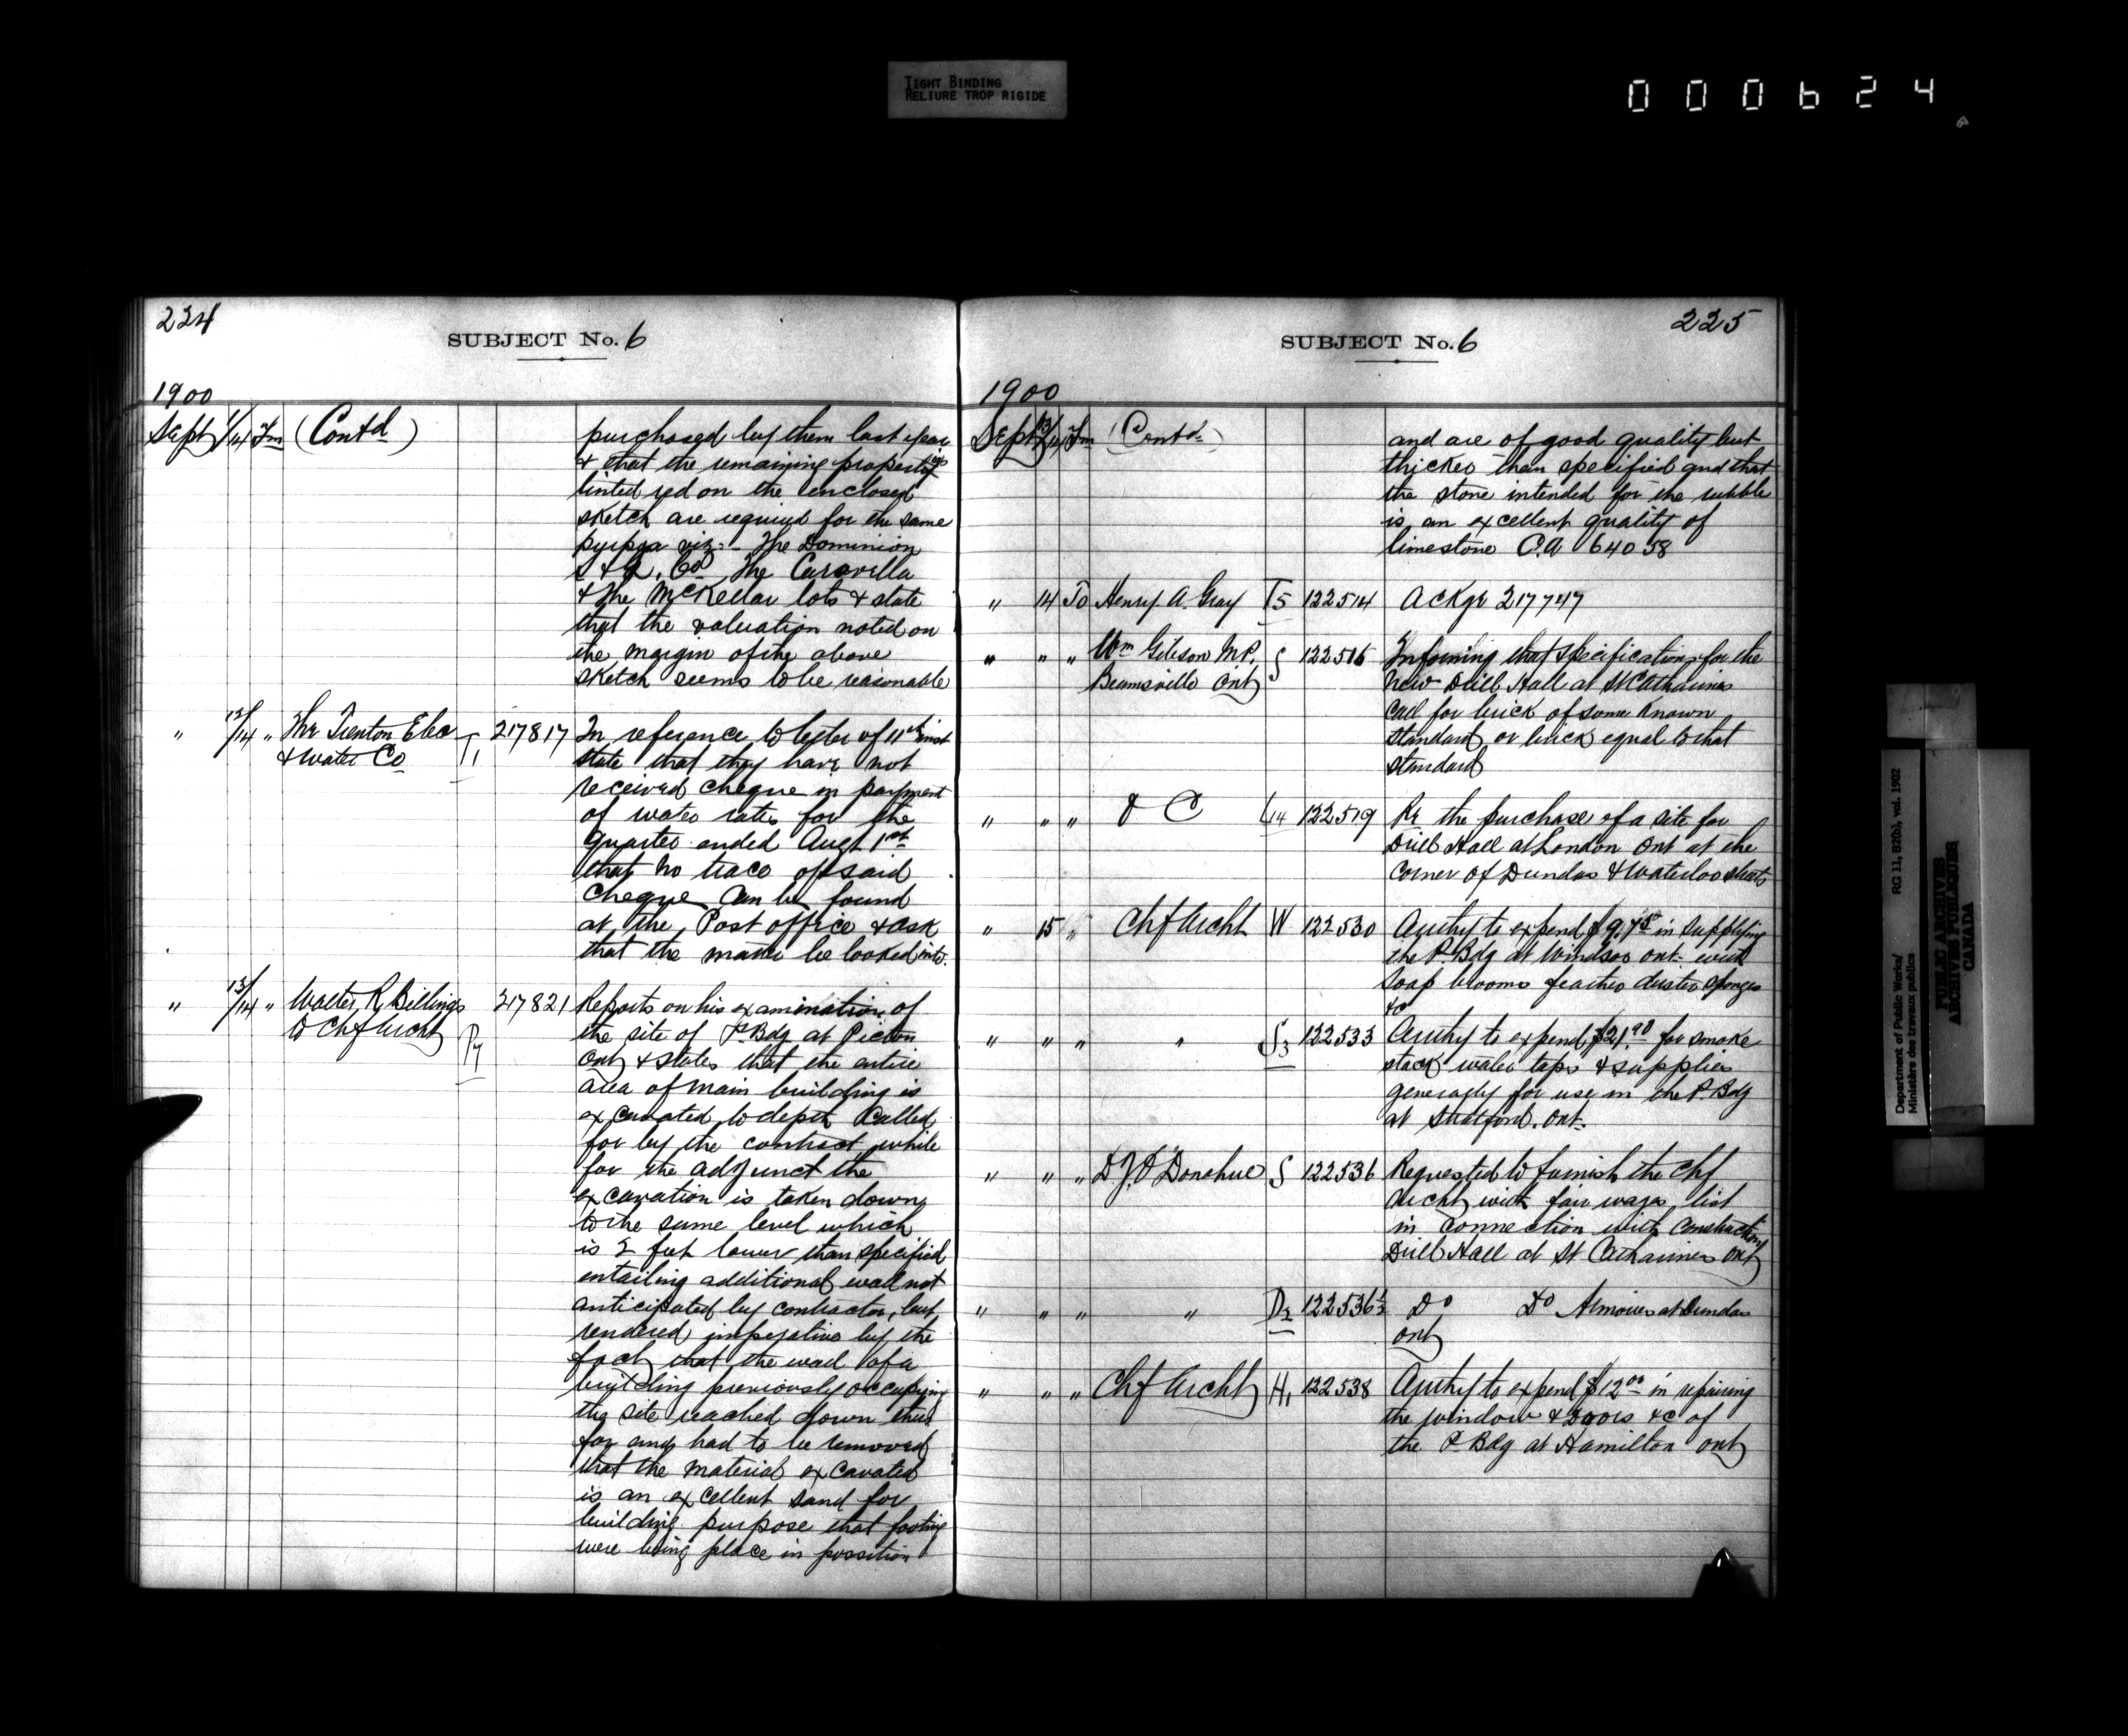 TIGHT BINDING
RELIURE TROP RIGIDE
000624
224
SUBJECT No. 6
1900
Sept 1/14 Fm (Contd)
purchased by them last year
& that the remaining properties
tinted red on the enclosed
sketch are required for the same
viz:- The Dominion
S & L. Co The Carovilla
& The McKellar lots & state
that the valuation noted on
the margin of the above
sketch seems to be reasonable
" 12/14 " The Trenton Elec T1 217817 In reference to letter of 11th inst
& Water Co state that they have not
received cheque in payment
of water rates for the
quarter ended Augt 1st
that no trace of said
cheque can be found
at the Post office & ask
that the matter be looked into.
" 13/14 " Walter R Billings 217821 Reports on his examination of
to Chf Archt P7 the site of P. Bdg at Picton
Ont & states that the entire
area of main building is
excavated to depth called
for by the contract while
for the adjunct the
excavation is taken down
to the same level which
is 2 feet lower than specified
entailing additional wall not
anticipated by contractor, but
rendered imperative by the
fact that the wall of a
building previously occupying
the site reached down thus
far and had to be removed
that the material excavated
is an excellent sand for
building purpose that footing
were being place in possition
225
SUBJECT No. 6
1900
Sept 13/14 Fm (Contd)
and are of good quality but
thicker than specified and that
the stone intended for the rubble
is an excellent quality of
limestone C.A 64058
" 14 To Henry A. Gray T5 122514 Ackge 217747
" " " Wm Gibson M.P. S 122516 Informing that specifications for the
Beamsville Ont new Drill Hall at St Catharines
call for brick of some known
standard or brick equal to that
standard
" " " O C L14 122519 Re the purchase of a site for
Drill Hall at London Ont at the
corner of Dundas & Waterloo streets
" 15 " Chf Archt W 122530 Authy to expend $9.75 in supplying
the P. Bdg at Windsor Ont with
soap brooms feather duster sponges
&c
" " " " S3 122533 Authy to expend $21.90 for smoke
stack water taps & supplies
generally for use in the P. Bdg
at Stratford. Ont.
" " " D.J. O'Donahue S 122536 Requested to furnish the Chf
Archt with fair wages list
in connection with construction
Drill Hall at St Catharines Ont
" " " " D2 122536½ Do Do Armouries at Dundas
Ont
" " " Chf Archt H1 122538 Authy to expend $12.00 in repairing
the window & doors &c of
the P. Bdg at Hamilton Ont
Department of Public Works/ RG 11, B2(b), vol. 1902
Ministère des travaux publics
PUBLIC ARCHIVES
ARCHIVES PUBLIQUES
CANADA